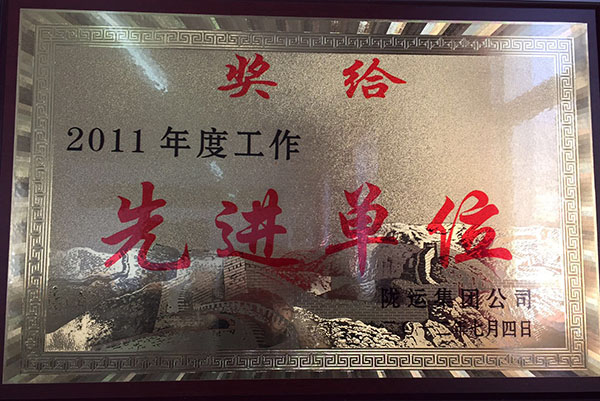 奖给
2011年度工作
先进单位
陇运集团公司
二年七月四日